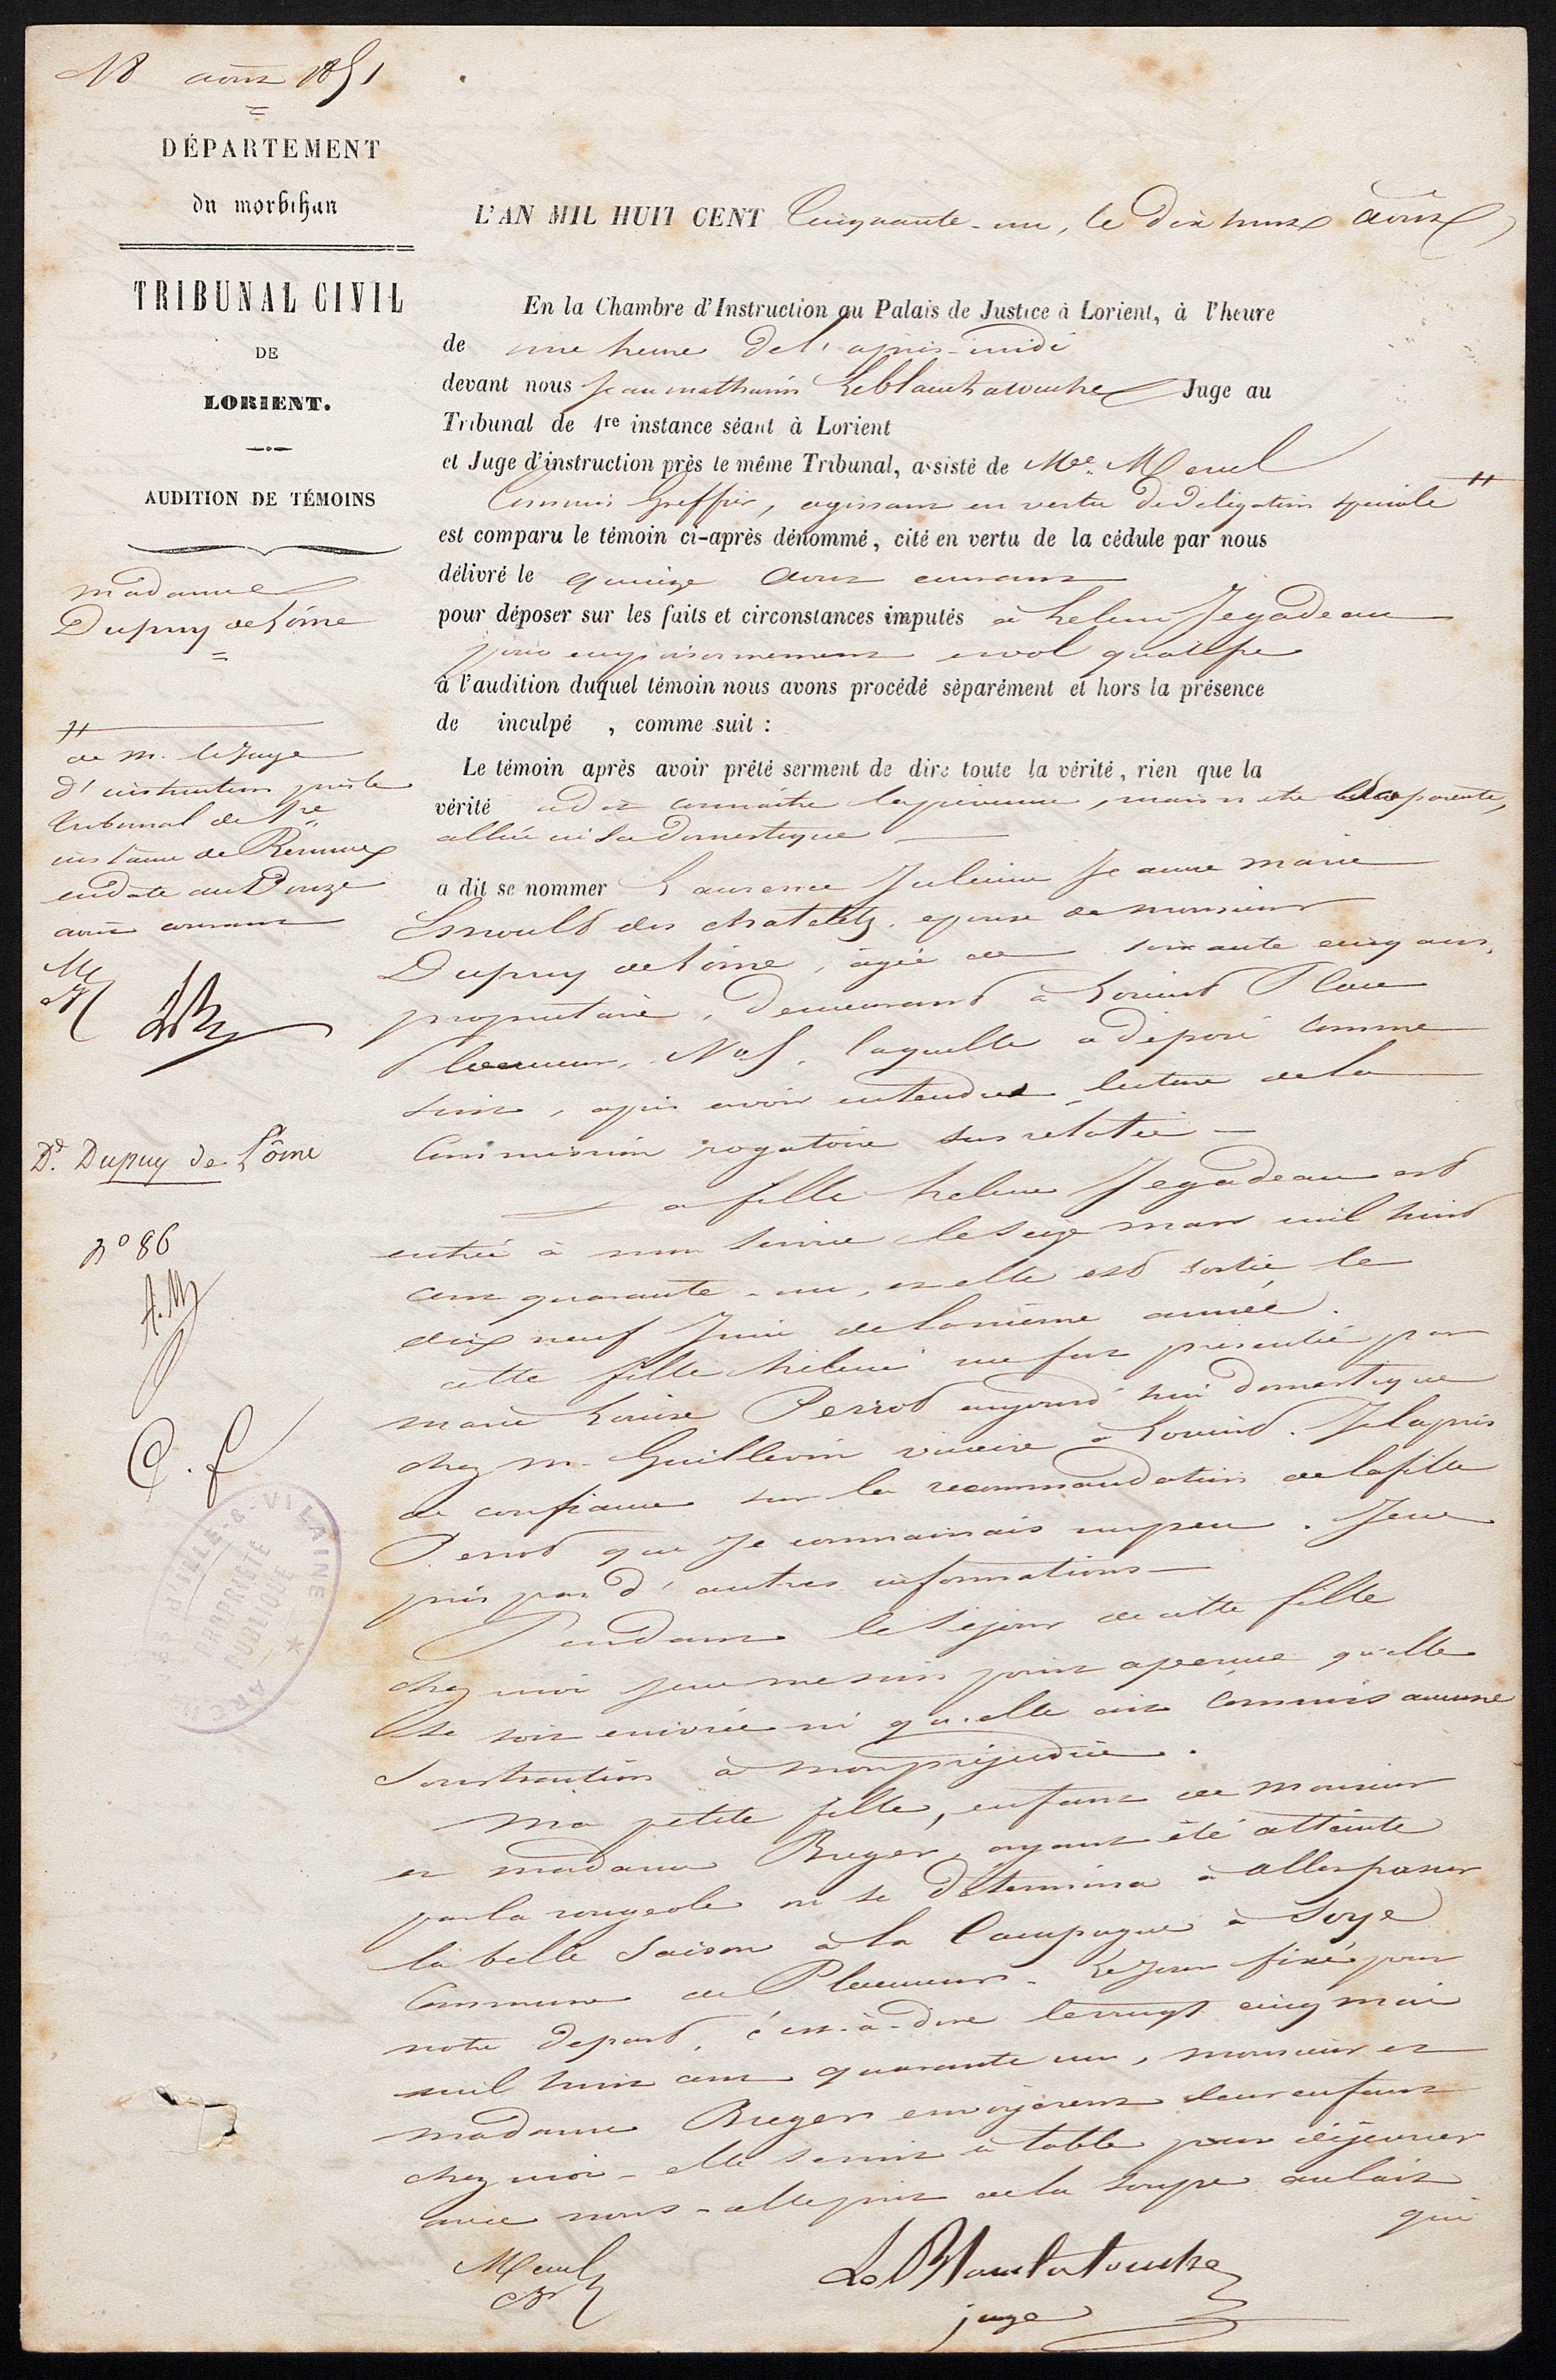 18 août 1851
DÉPARTEMENT
du morbihan
TRIBUNAL CIVIL
DE
LORIENT.
AUDITION DE TÉMOINS
madame
Dupuy de Lôme
//
de M. le Juge
d'instruction près le
tribunal de 1re
instance de Rennes
en date du Douze
août courant
Dᵉ Dupuy de Lôme
nº 86
A.M
C. f
ARCHIVES d'ILLE-&-VILAINE
PROPRIÉTÉ
PUBLIQUE
L'AN MIL HUIT CENT Cinquante-un, le dix huit août,
En la Chambre d'Instruction au Palais de Justice à Lorient, à l'heure
de une heure de l'après-midi
devant nous Jean mathurin Leblanchatouche Juge au
Tribunal de 1re instance séant à Lorient
et Juge d'instruction près le même Tribunal, assisté de Me.
Commis Greffier, agissant en vertu de délégation spéciale //
est comparu le témoin ci-après dénommé, cité en vertu de la cédule par nous
délivré le quinze août courant
pour déposer sur les faits et circonstances imputés à helene Jegadeau
pour empoisonnement et vol qualifié
à l'audition duquel témoin nous avons procédé séparément et hors la présence
de inculpé , comme suit :
Le témoin après avoir prêté serment de dire toute la vérité, rien que la
vérité a dit connaître la prévenue, mais n'etre parente,
alliée ni sa domestique
a dit se nommer Laurence Julienne Jeanne marie
Arnould des chatelets, epouse de monsieur
Dupuy de Lôme, âgée de soixante cinq ans,
propriétaire, demeurant à Lorient Place
Ploemeur, No 5, laquelle a déposé comme
suit, après avoir entendu lecture de la
Commission rogatoire sus relatée -
La fille helene Jegadeau est
entrée à mon service le seize mars mil huit
cent quarante-un, et elle est sortie le
dix neuf Juin de la même année.
cette fille hélène me fut présentée par
marie Louise Perrot aujourd'hui domestique
chez m. Guillevin vicaire à Lorient. Je la pris
de confiance sur la recommandation de la fille
Perrot que je connaissais un peu. Je ne
pris pas d'autres informations -
Pendant le séjour de cette fille
chez moi je ne me suis point aperçue qu'elle
se soit enivrée ni qu'elle ait commis aucune
soustraction à mon préjudice.
Ma petite fille, enfant de monsieur
et madame Breger, ayant été atteinte
par la rougeole on se détermina à aller passer
la belle saison à la Campagne à Soye
Commune de Ploemeur - Le jour fixé pour
notre départ, c'est-à-dire le vingt cinq mai
mil huit cent quarante un, monsieur et
madame Breger envoyèrent leur enfant
chez moi - elle se mit à table pour déjeuner
avec nous - elle prit de la soupe au lait
qui
Le Blanchatouche
juge